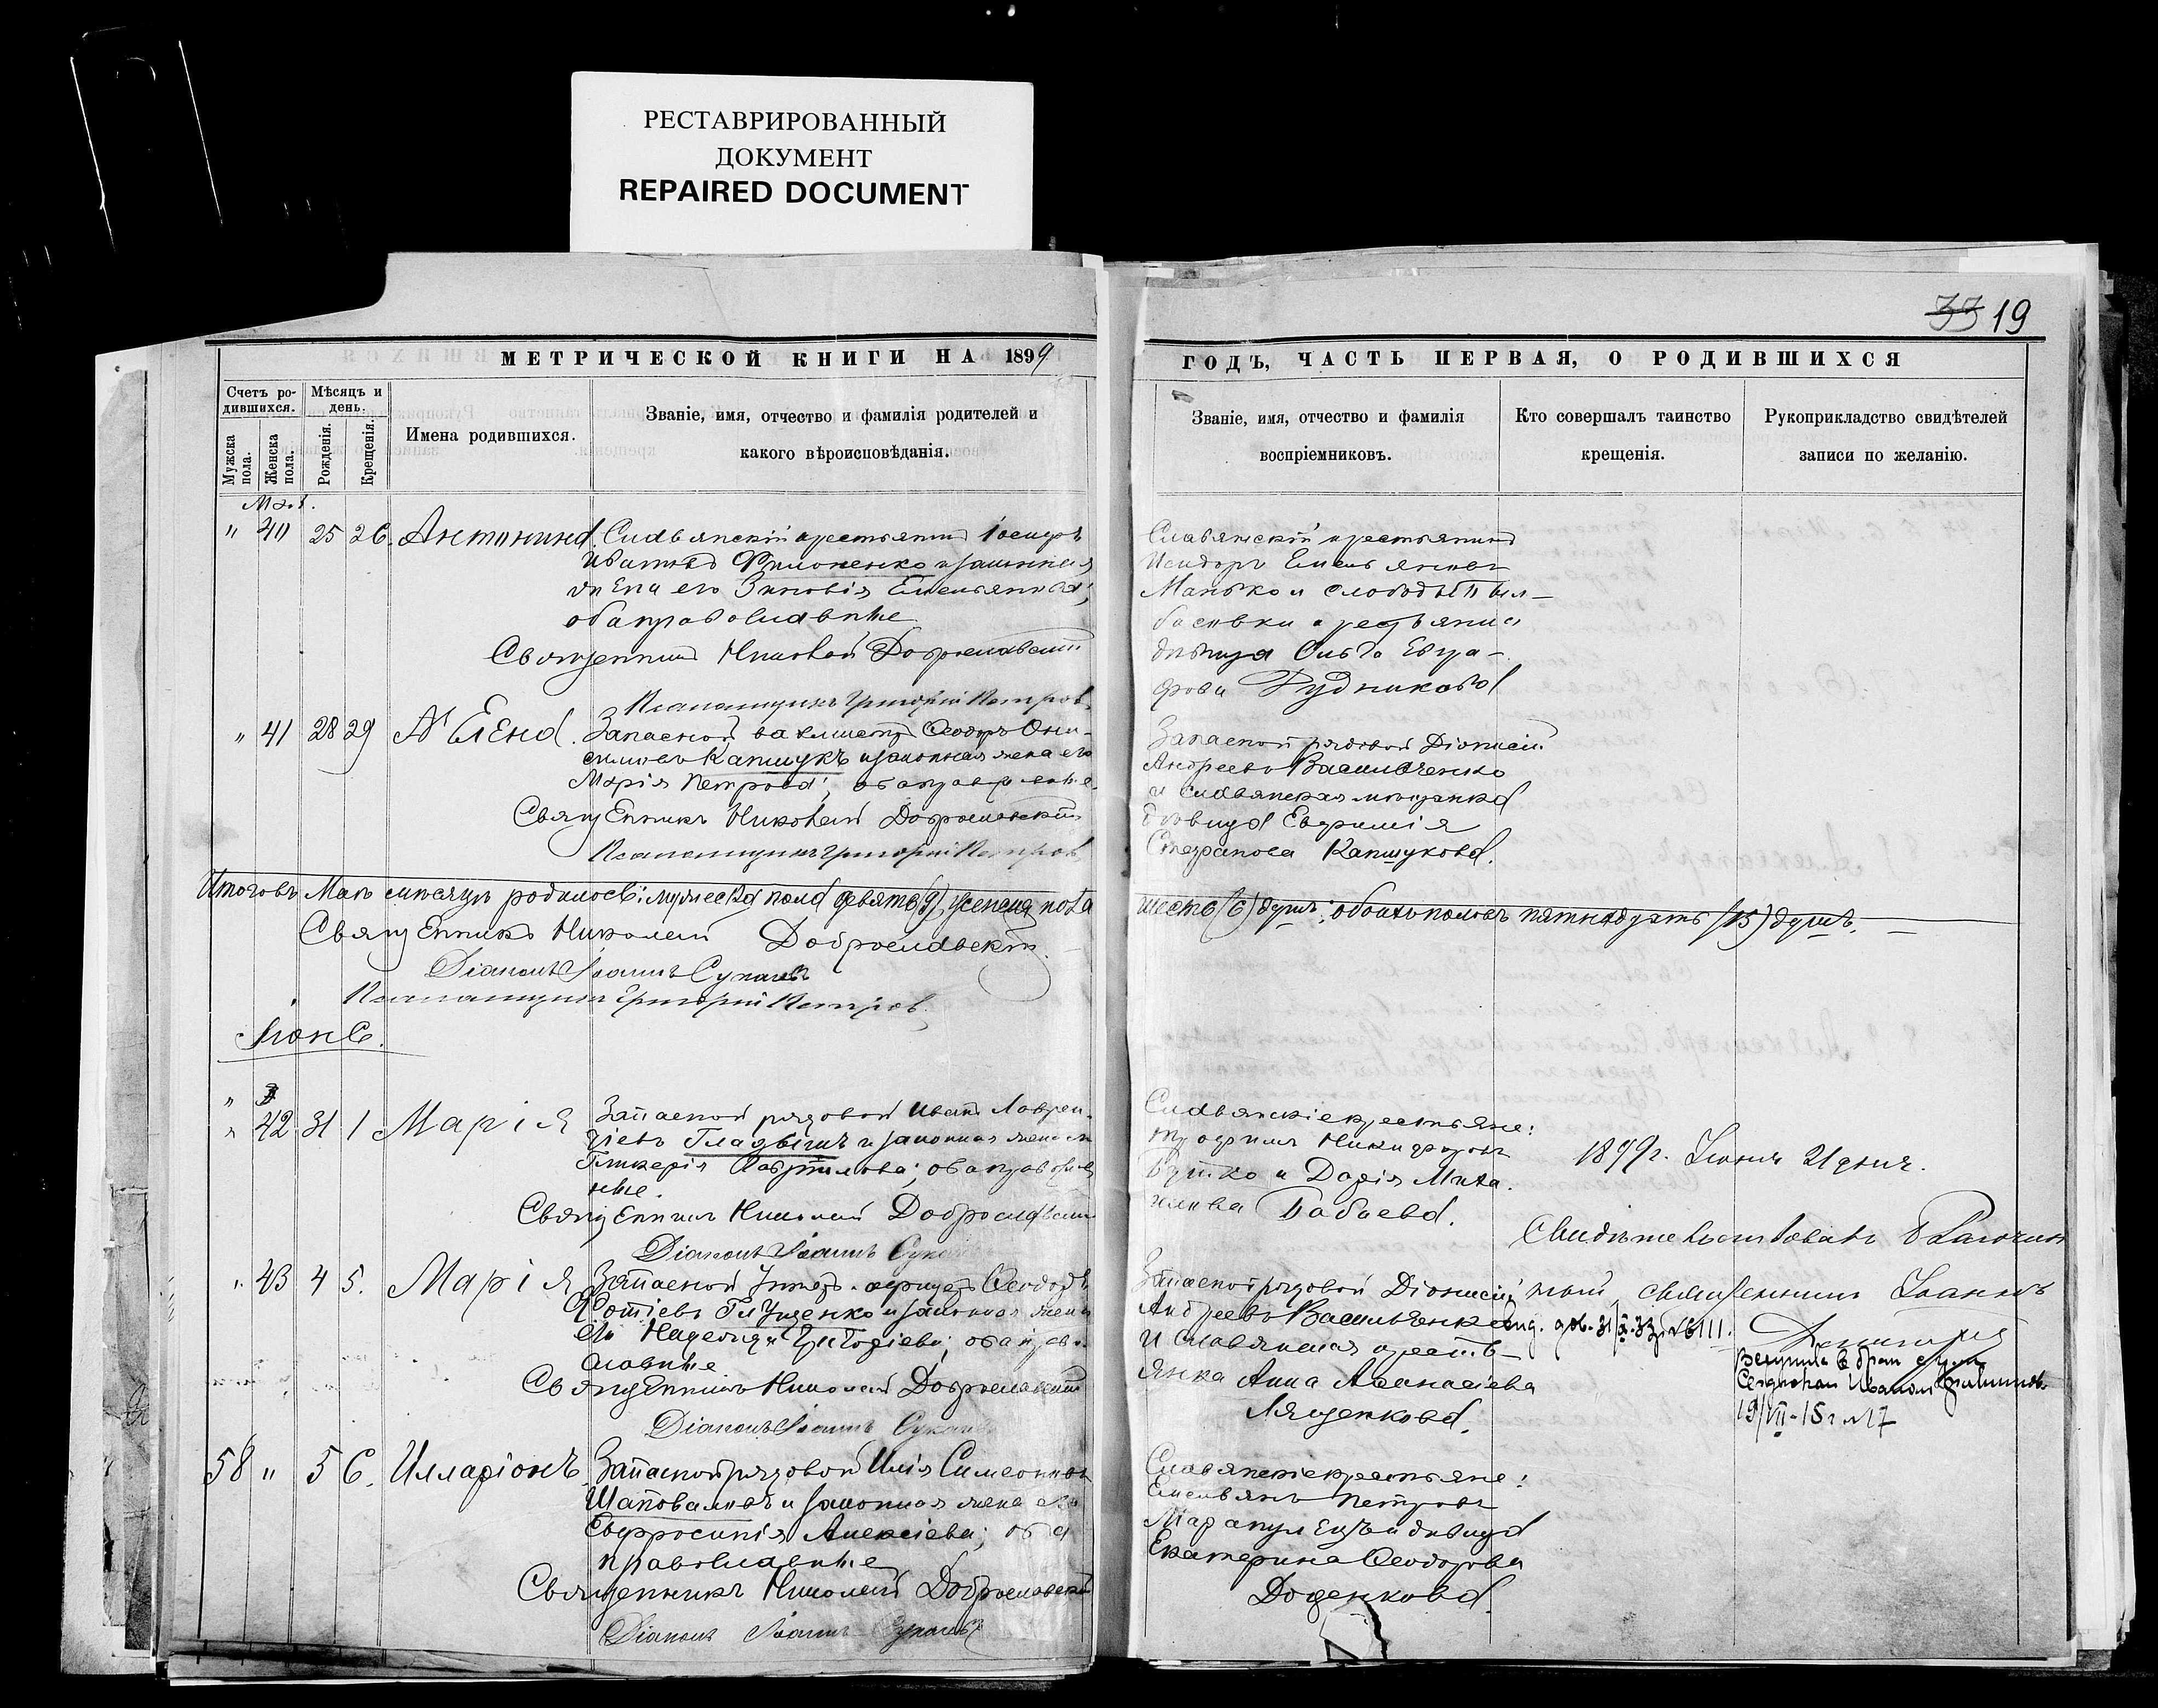 РЕСТАВРИРОВАННЫЙ
ДОКУМЕНТ
REPAIRED DOCUMENT
33 19
МЕТРИЧЕСКОЙ КНИГИ НА 1899
Счетъ ро-
дившихся.
Мужска
пола.
Женска
пола.
Мѣсяцъ и
день.
Рожденія.
Крещенія.
Имена родившихся.
Званіе, имя, отчество и фамилія родителей и
какого вѣроисповѣданія.
Май.
" 40 25 26. Антонина. Славянскій крестьянинъ
Ивановъ Филоненко и законная
жена его Зиновія Емельянова;
оба православные
Священникъ Николай Доброславскій
Псаломщикъ Григорій Петровъ
" 41 28 29 Елена. Запасной Ѳеодоръ Они-
симовъ Капшукъ и законная жена его
Марія Петрова; оба православные.
Священникъ Николай Доброславскій
Псаломщикъ Григорій Петровъ
Итого въ Маѣ мѣсяцѣ родилось: мужеска пола девять (9), женска пола
Священникъ Николай Доброславскій
Діаконъ Іоаннъ
Псаломщикъ Григорій Петровъ.
Іюнь.
" 42 31 1 Марія Запасной рядовой Иванъ Лаврен-
тіевъ Гладышъ и законная жена его
Гликерія Гавриилова; оба православ
ные.
Священникъ Николай Доброславскій
Діаконъ Іоаннъ
" 43 4 5. Марія Запасной унтеръ-офицеръ Ѳеодоръ
Глущенко и законная жена
его Надежда Григоріева; оба право-
славные
Священникъ Николай Доброславскій
Діаконъ Іоаннъ
58 " 5 6. Илларіонъ Запасной рядовой Илія Симеоновъ
Шаповаловъ и законная жена его
Евфросинія Алексіева; оба
православные
Священникъ Николай Доброславскій
Діаконъ Іоаннъ
ГОДЪ, ЧАСТЬ ПЕРВАЯ, О РОДИВШИХСЯ
Званіе, имя, отчество и фамилія
воспріемниковъ.
Кто совершалъ таинство
крещенія.
Рукоприкладство свидѣтелей
записи по желанію.
Славянскій крестьянинъ
Исидоръ Емельяновъ
Манько и слободы Был-
басовки крестьянка
дѣвица Ольга Евгра-
фова Рудникова
Запасной рядовой Діонисій
Андреевъ Васильченко
и славянская мѣщанка
дѣвица Евфимія
Стефанова Капшукова.
шесть (6) душъ; обоихъ половъ пятнадцать (15) душъ.
Славянскіе крестьяне:
Трофимъ Никифоровъ
и Дарія Миха-
илова Бабаева.
1899г. Іюня 21 дня.
Свидѣтельствовалъ
Запасной рядовой Діонисій
Андреевъ Васильченко
и славянская крестья-
янка Анна Аѳанасіева
Ляшенкова.
священникъ Іоаннъ
Вступила в брак с
Иваном
Славянскіе крестьяне:
Емельянъ Петровъ
и дѣвица
Екатерина Ѳеодорова
Доценкова.